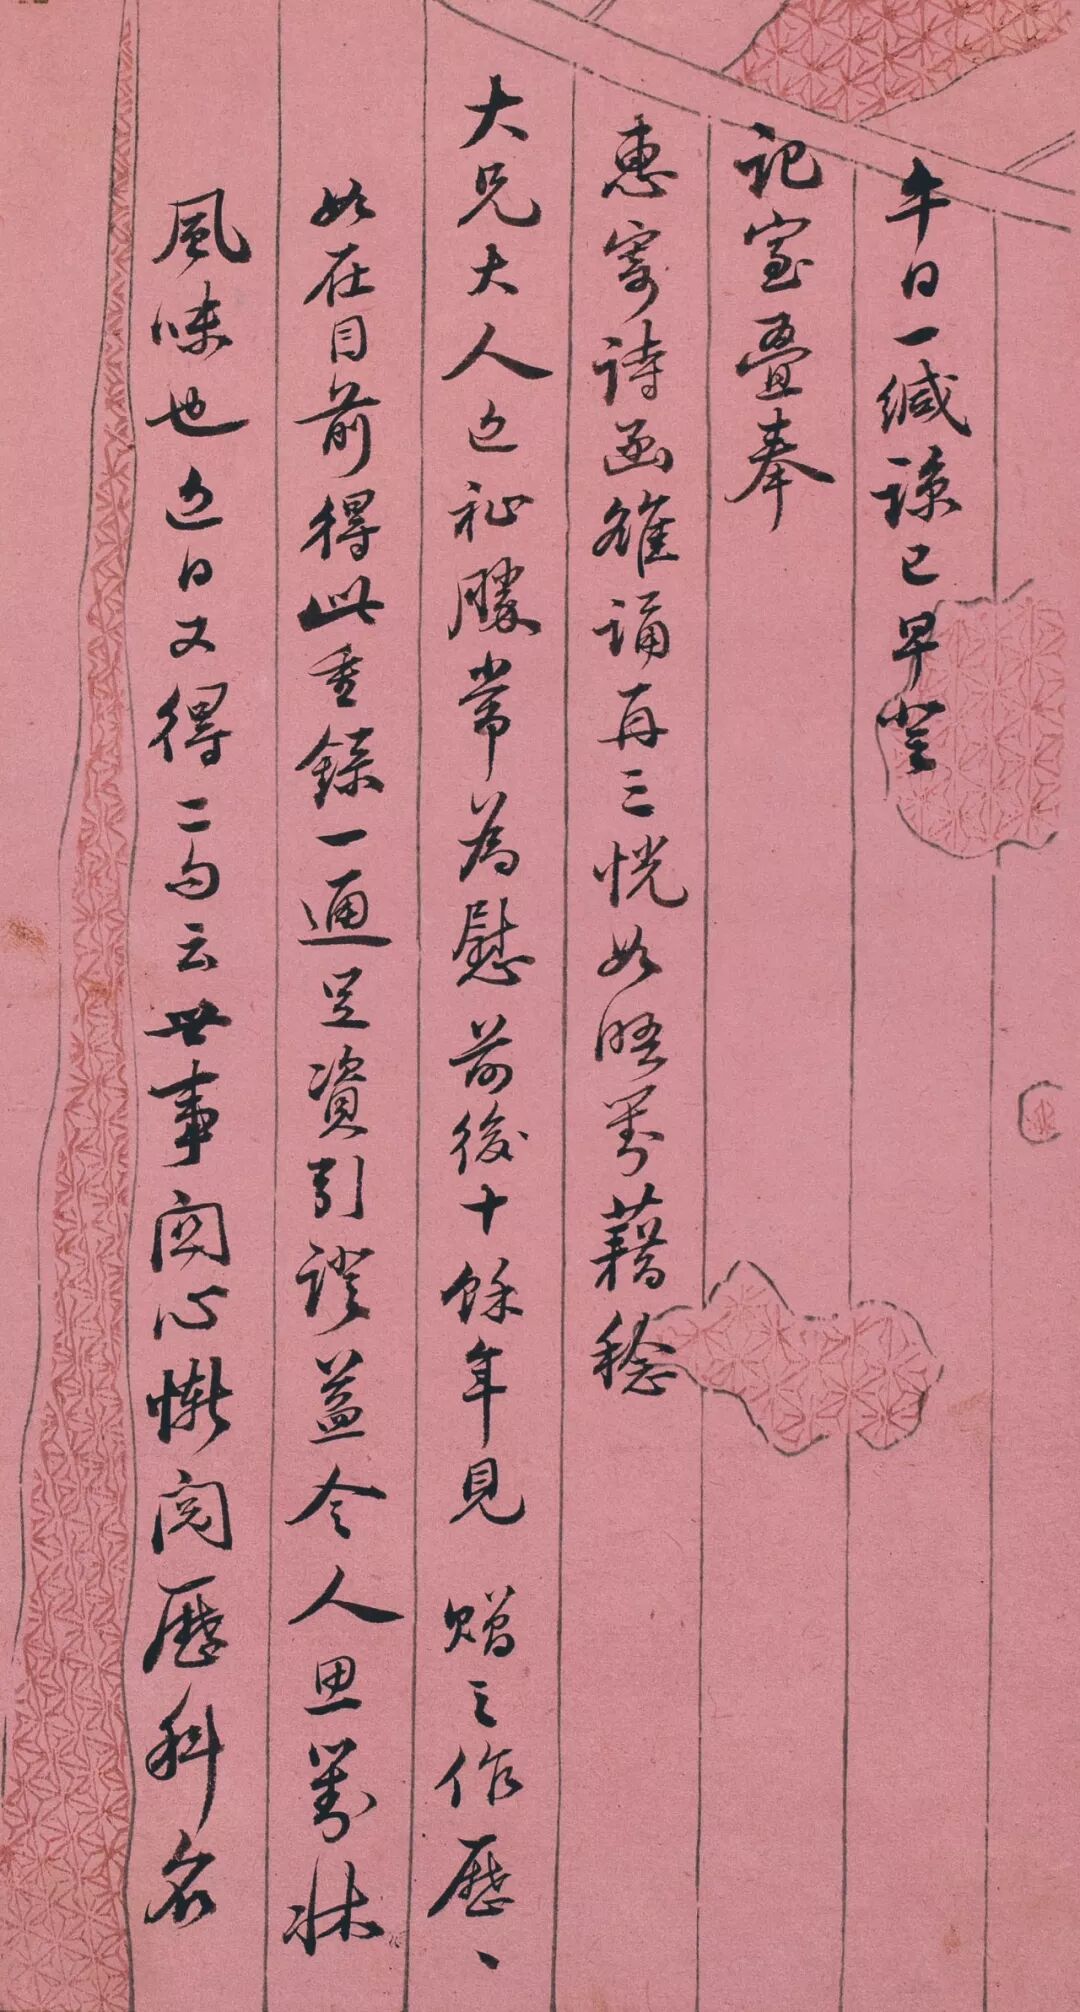 午日一缄諒已早登
記室疊奉
惠寄詩函雒誦再三恍如晤對藉稔
大兄大人近祉勝常為慰前後十餘年見贈之作歷〻
如在目前得此重錄一通足資引證益令人思對牀
風味也近日又得二句云世事関心慚閱歷科名